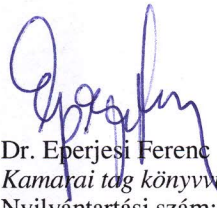 Dr. Eperjesi Ferenc
Kamarai tag könyvv
Nyilvántartási szám: